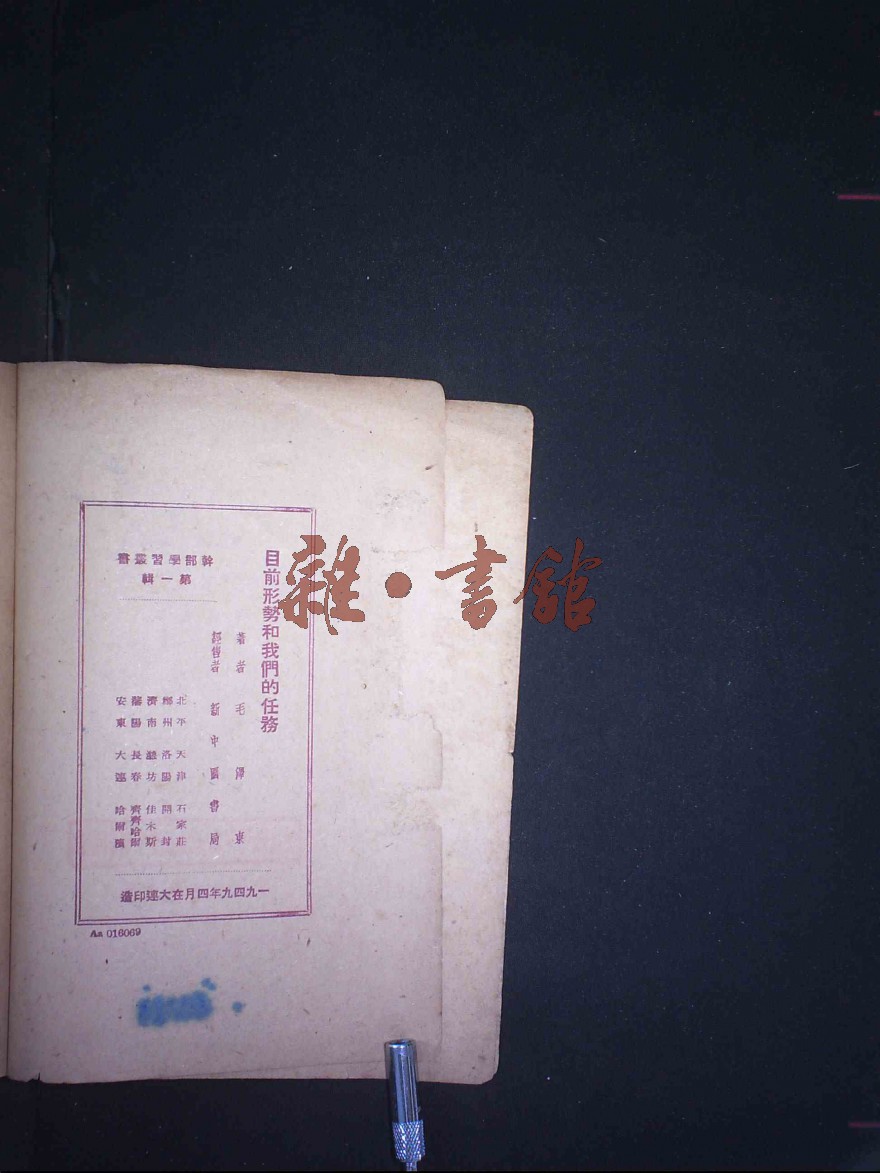 目前形勢和我們的任務
著者 毛澤東
經售者 新中國書局
幹部學習叢書
第一輯
北平 天津 石家莊
鄭州 洛陽 開封
濟南 濰坊 佳木斯
瀋陽 長春 齊齊哈爾
安東 大連 哈爾濱
一九四九年四月在大連印造
Aa 016069
雜·書館